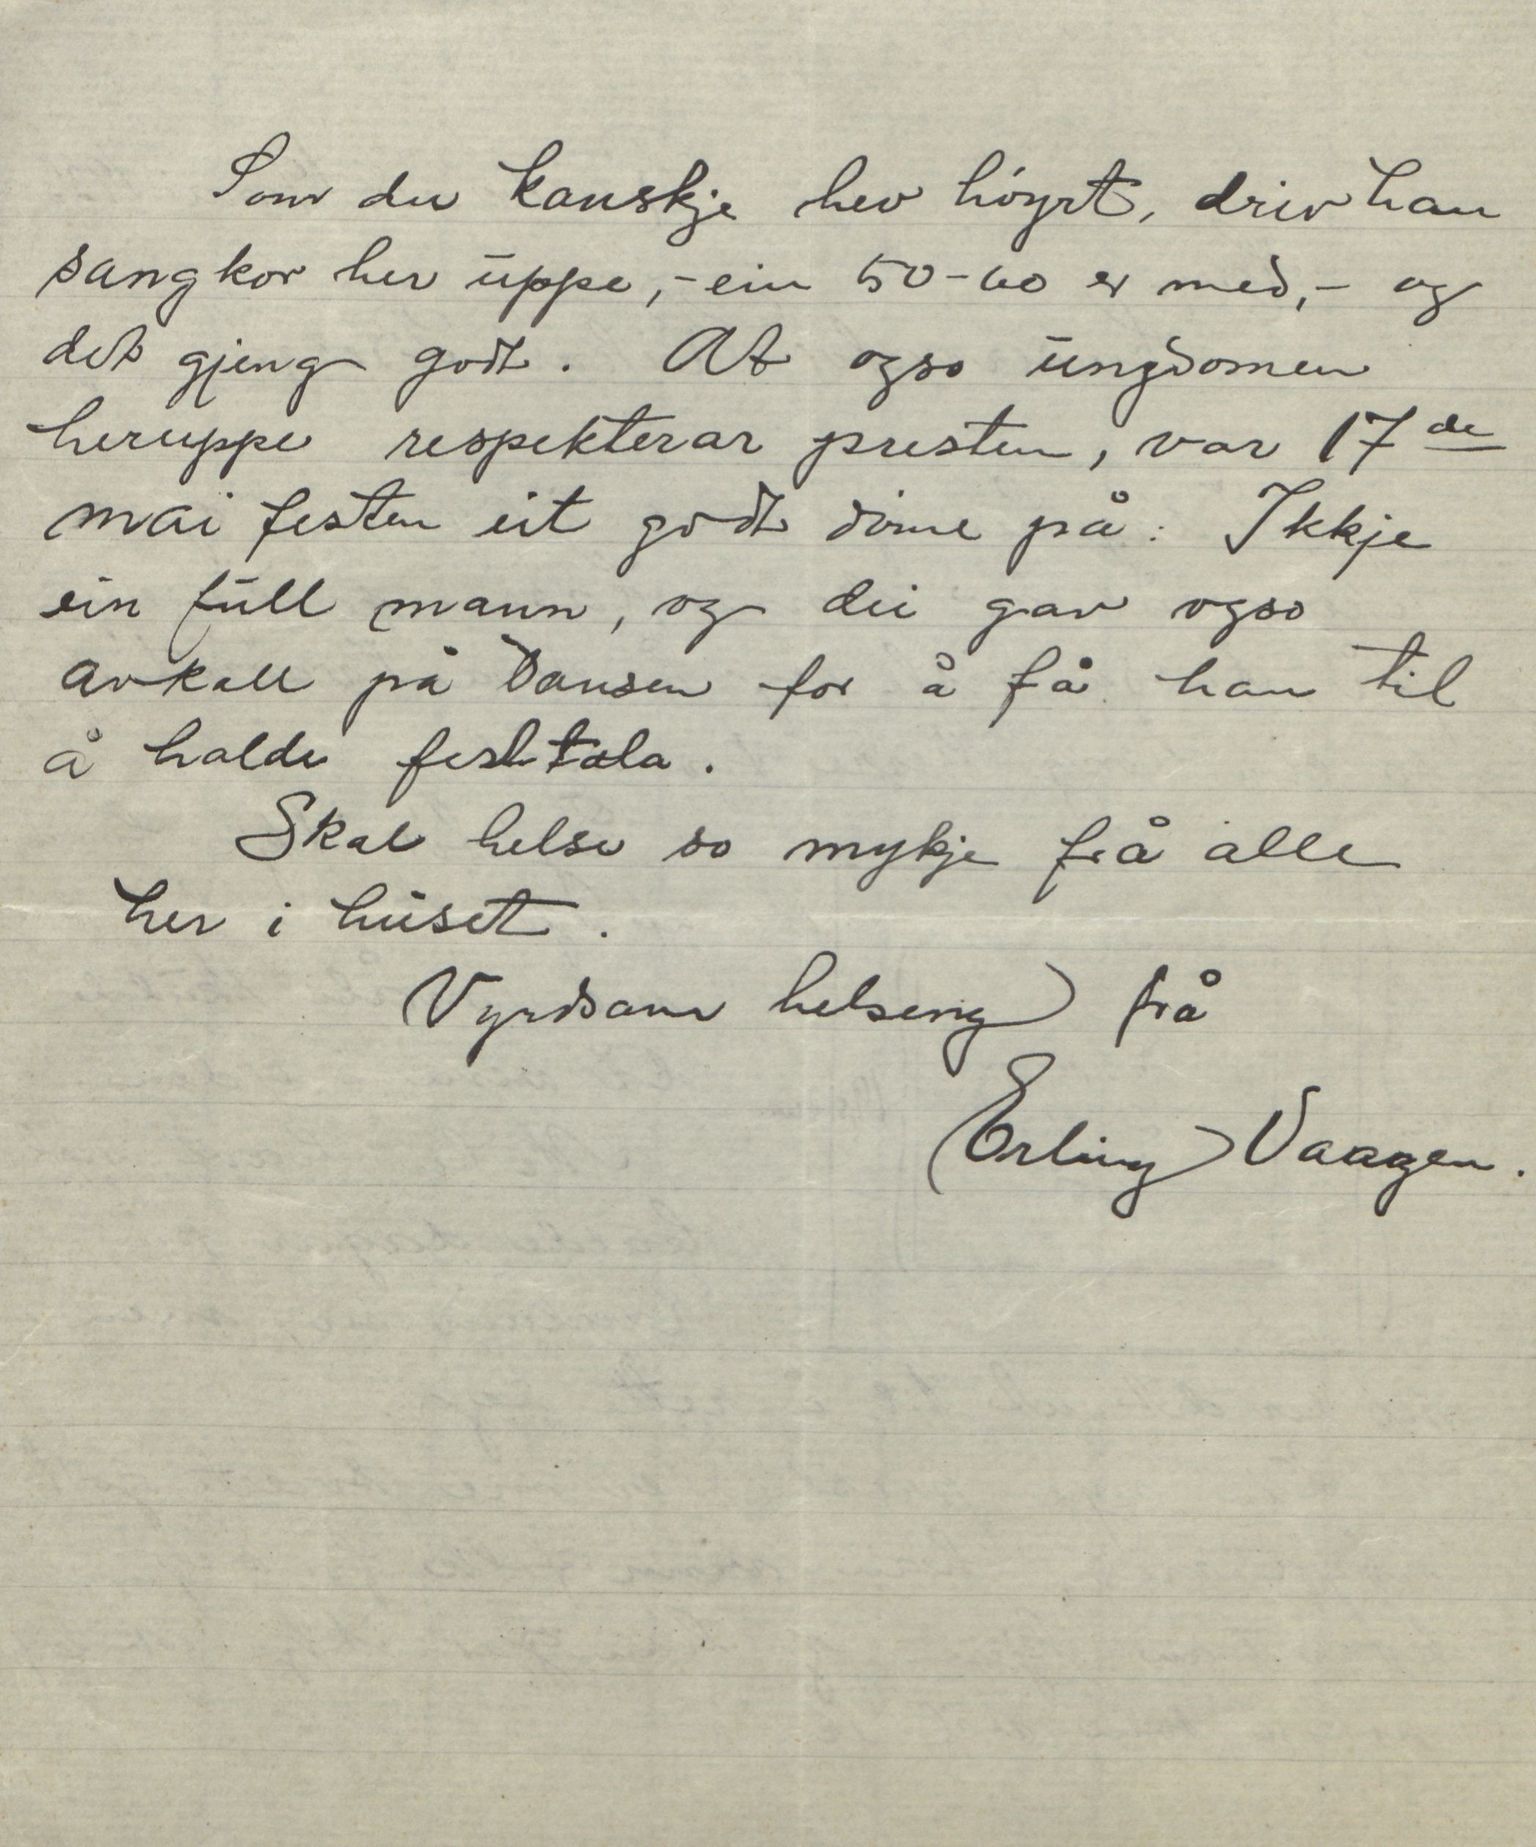 Som du kanskje hev höyrt, driv han
sangkor her uppe, - ein 50-60 er med, - og
det gjeng godt. At ogso ungdomen
heruppe respekterar presten, var 17de
mai festen eit godt döme på: Ikkje
ein full mann, og dei gav ogso
avkall på Dansen for å få han til
å halde festtala.
Skal helse so mykje frå alle
her i huset.
Vyrdsam helsing frå
Erling Vaagen.